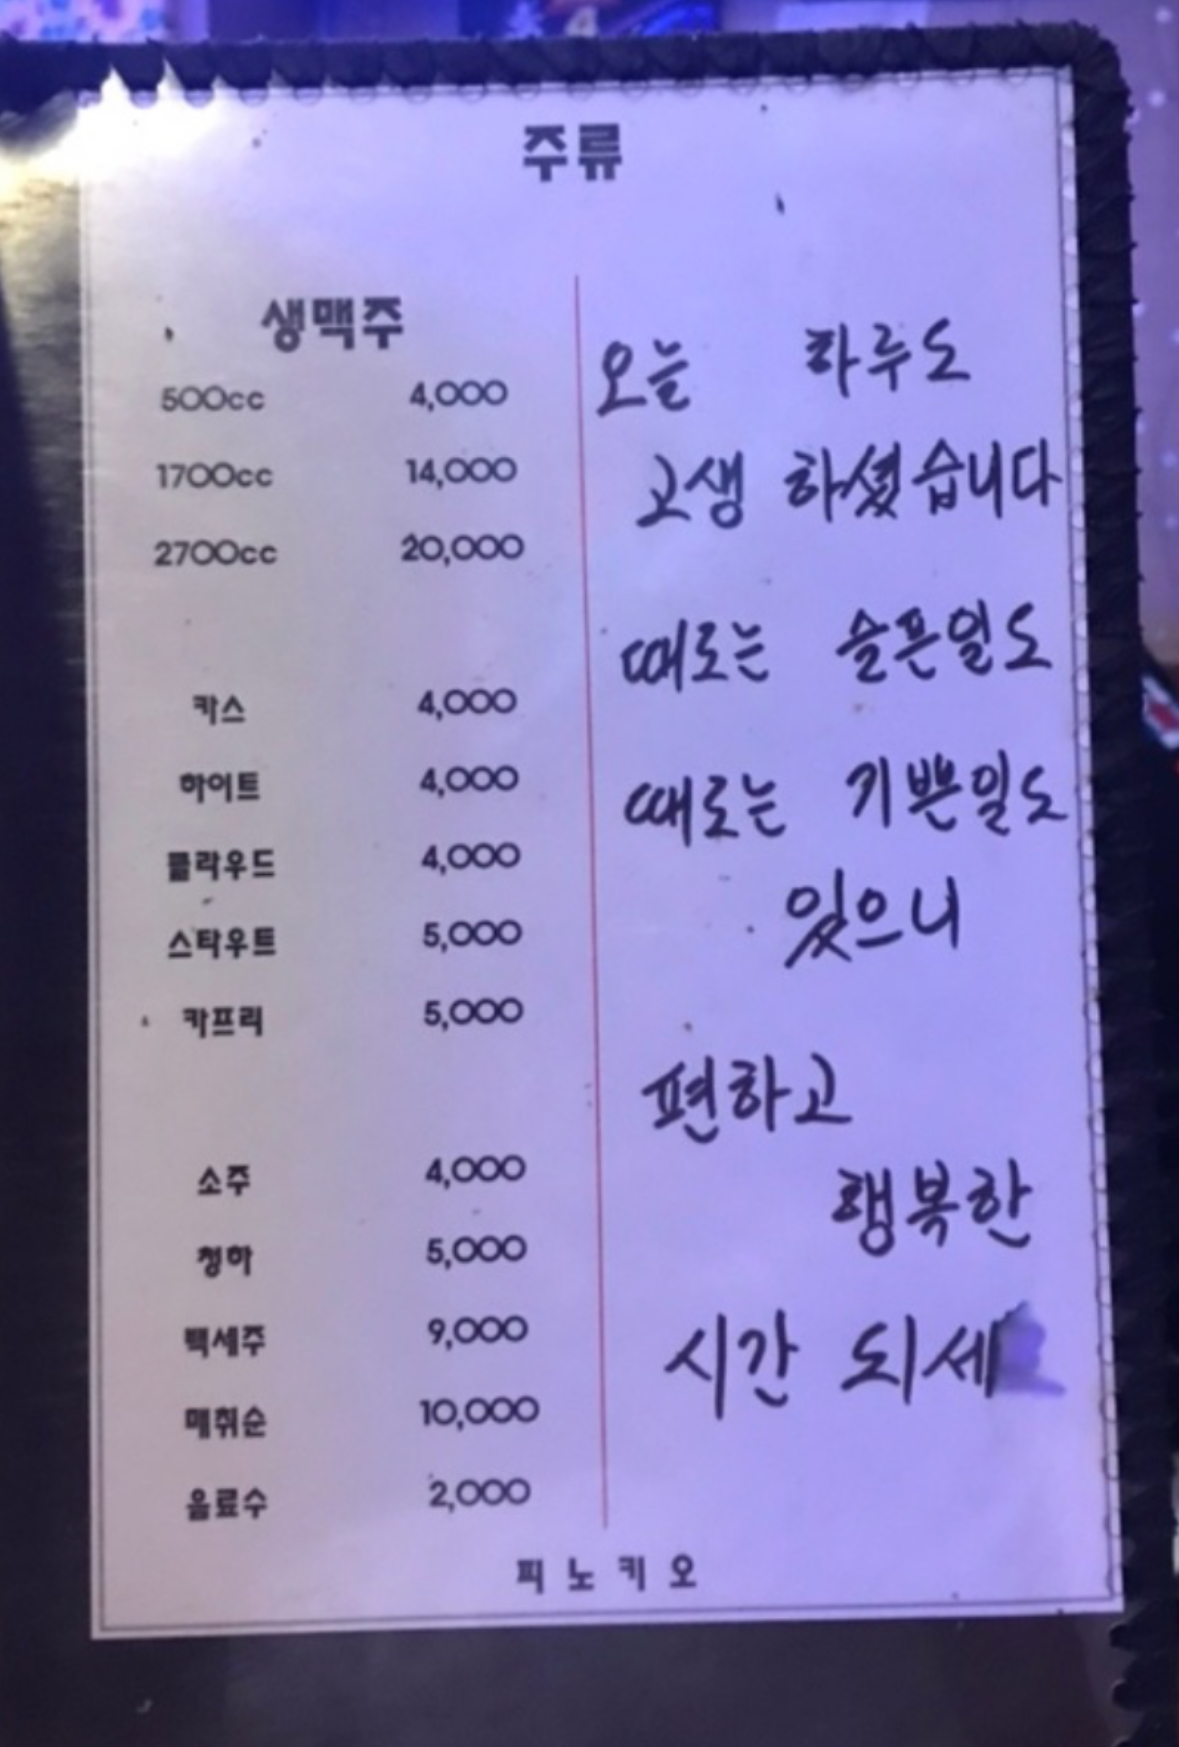 주류
생맥주
500cc 4,000
1700cc 14,000
2700cc 20,000
카스 4,000
하이트 4,000
클라우드 4,000
스타우트 5,000
카프리 5,000
소주 4,000
청하 5,000
백세주 9,000
매취순 10,000
음료수 2,000
오늘 하루도
고생 하셨습니다
때로는 슬픈일도
때로는 기쁜일도
있으니
편하고
행복한
시간 되세
피노키오